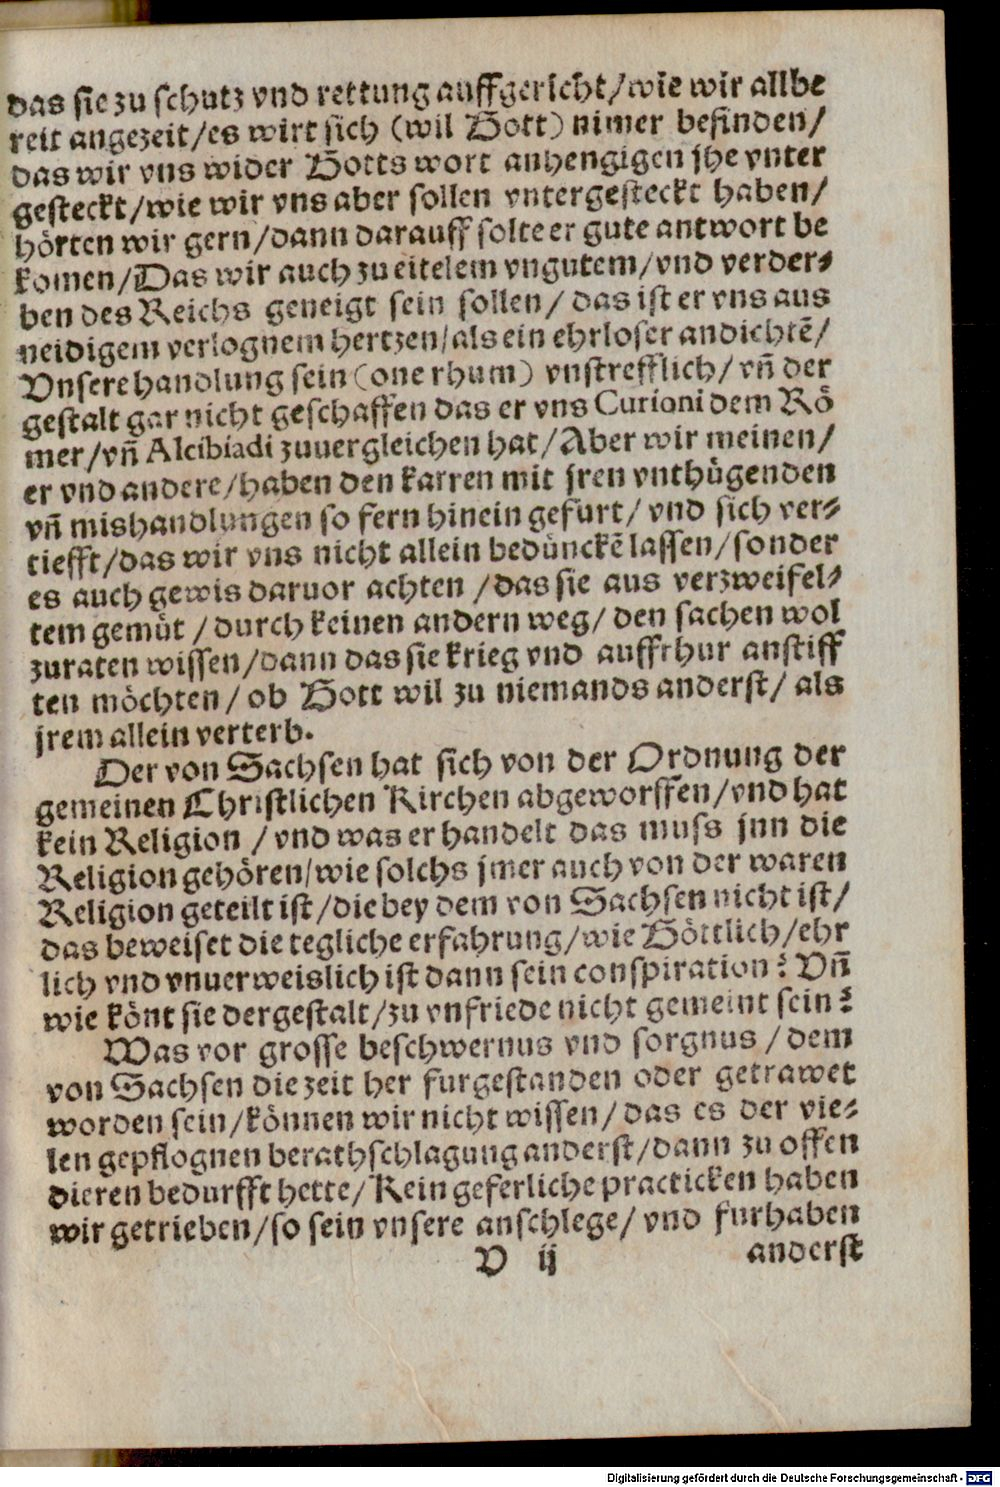 das sie zu schutz vnd rettung auffgericht/wie wir allbe
reit angezeit/es wirt sich (wil Gott) nimer befinden/
das wir vns wider Gotts wort anhengigen jhe vnter
gesteckt/wie wir vns aber sollen vntergesteckt haben/
hörten wir gern/dann darauff solte er gute antwort be
komen/Das wir auch zu eitelem vngutem/vnd verder⸗
ben des Reichs geneigt sein sollen/ das ist er vns aus
neidigem verlognem hertzen/als ein ehrloser andichtē/
Vnsere handlung sein (one rhum) vnstrefflich/ vñ der
gestalt gar nicht geschaffen das er vns Curioni dem Rö
mer/vñ Alcibiadi zuuergleichen hat/Aber wir meinen/
er vnd andere/haben den karren mit jren vnthügenden
vñ mishandlungen so fern hinein gefurt/ vnd sich ver⸗
tiefft/das wir vns nicht allein bedünckē lassen/sonder
es auch gewis daruor achten /das sie aus verzweifel⸗
tem gemüt /durch keinen andern weg/ den sachen wol
zuraten wissen/dann das sie krieg vnd auffrhur anstiff
ten möchten/ ob Gott wil zu niemands anderst/ als
jrem allein verterb.
Der von Sachsen hat sich von der Ordnung der
gemeinen Christlichen Kirchen abgeworffen/vnd hat
kein Religion /vnd was er handelt das muss jnn die
Religion gehören/wie solchs jmer auch von der waren
Religion geteilt ist/die bey dem von Sachsen nicht ist/
das beweiset die tegliche erfahrung/wie Göttlich/ehr
lich vnd vnuerweislich ist dann sein conspiration? Vñ
wie könt sie dergestalt/zu vnfriede nicht gemeint sein?
Was vor grosse beschwernus vnd sorgnus /dem
von Sachsen die zeit her furgestanden oder getrawet
worden sein/können wir nicht wissen/das es der vie⸗
len gepflognen berathschlagung anderst/dann zu offen
dieren bedurfft hette/Kein geferliche practicken haben
wir getrieben/so sein vnsere anschlege/ vnd furhaben
V ij anderst
Digitalisierung gefördert durch die Deutsche Forschungsgemeinschaft - DFG